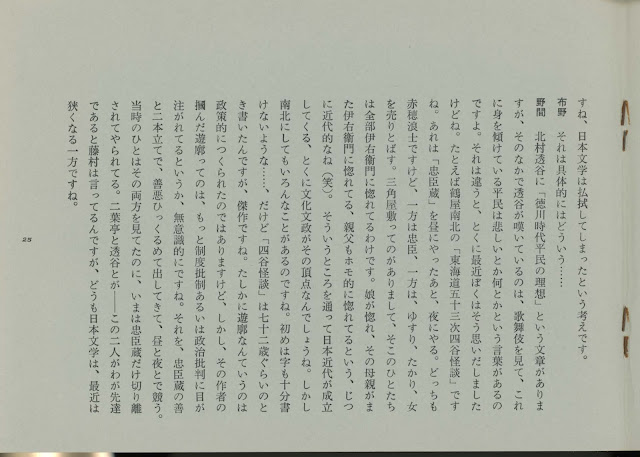 すね、日本文学は払拭してしまったという考えです。
布野　それは具体的にはどういう……
野間　北村透谷に「徳川時代平民の理想」という文章がありま
すが、そのなかで透谷が嘆いているのは、歌舞伎を見て、これ
に身を傾けている平民は悲しいとか何とかという言葉があるの
ですよ。それは違うと、とくに最近ぼくはそう思いだしました
けどね。たとえば鶴屋南北の「東海道五十三次四谷怪談」です
ね。あれは「忠臣蔵」を昼にやったあと、夜にやる。どっちも
赤穂浪士ですけど、一方は忠臣、一方は、ゆすり、たかり、女
を売りとばす。三角屋敷ってのがありまして、そこのひとたち
は全部伊右衛門に惚れてるわけです。娘が惚れ、その母親がま
た伊右衛門に惚れてる、親父もホモ的に惚れてるという、じつ
に近代的なね（笑）。そういうところを通って日本近代が成立
してくる、とくに文化文政がその頂点なんでしょうね。しかし
南北にしてもいろんなことがあるのですね。初めは字も十分書
けないような……、だけど「四谷怪談」は七十二歳ぐらいのと
き書いたんですが、傑作ですね。たしかに遊廓なんていうのは
政策的につくられたのではありますけど、しかし、その作者の
摑んだ遊廓ってのは、もっと制度批制あるいは政治批判に目が
注がれてるというか、無意識的にですね。それを、忠臣蔵の善
と二本立てで、善悪ひっくるめて出してきて、昼と夜とで競う。
当時のひとはその両方を見てたのに、いまは忠臣蔵だけ切り離
されてやられてる。二葉亭と透谷とが——この二人がわが先達
であると藤村は言ってるんですが、どうも日本文学は、最近は
狭くなる一方ですね。
25